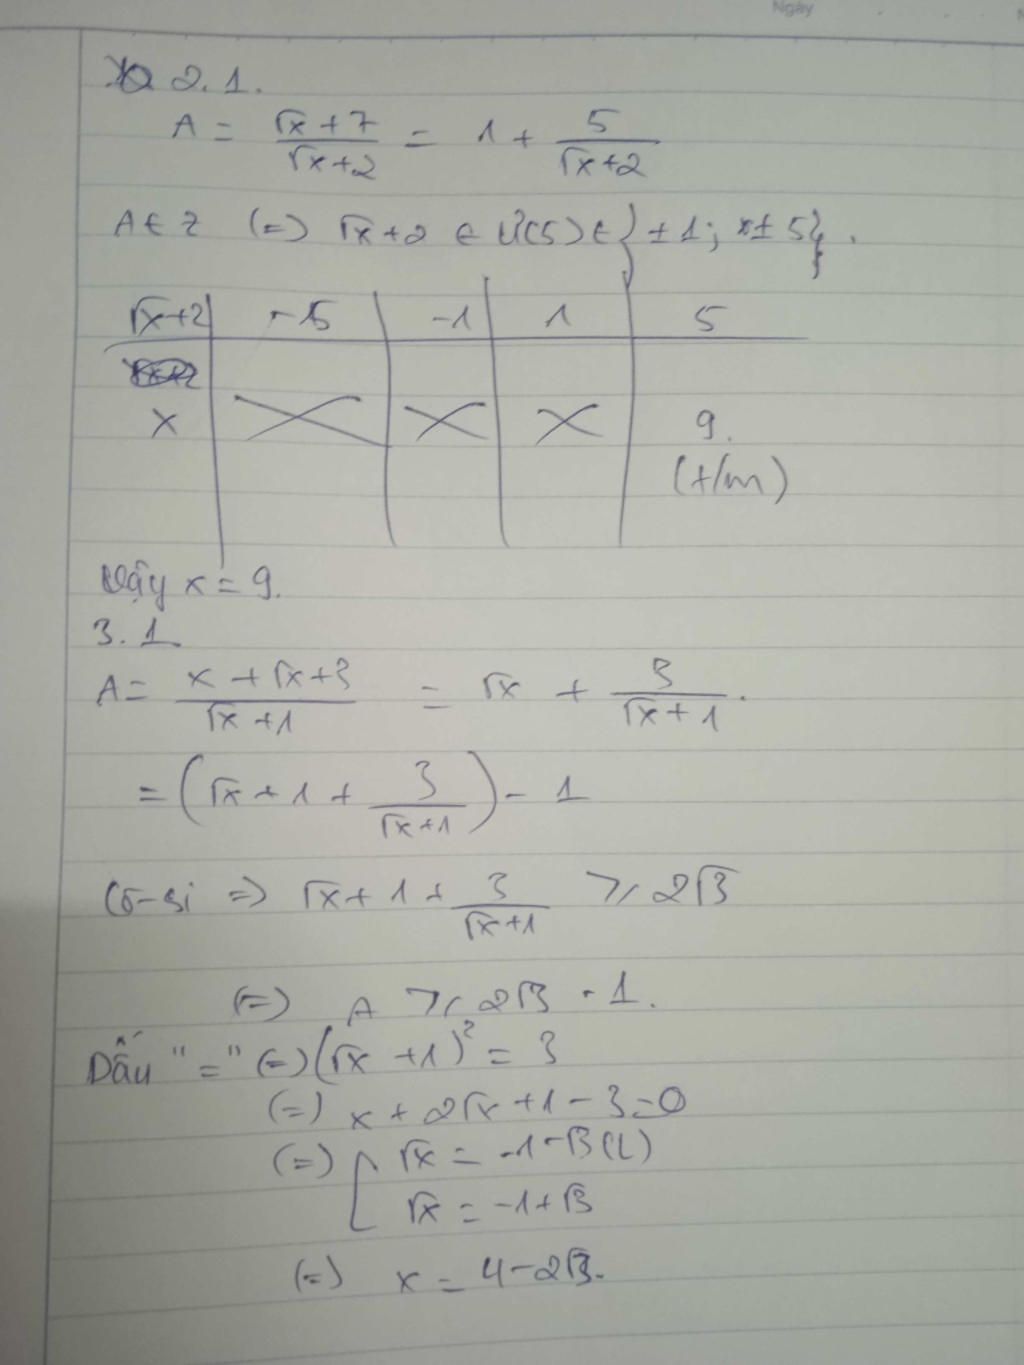 Ngày
2.1.
A = (√x+7)/(√x+2) = 1 + 5/(√x+2)
A ∈ Z (=) √x+2 ∈ Ư(5) ∈ {±1; ±5}.
√x+2 | -5 | -1 | 1 | 5
x | X | X | X | 9.
(t/m)
Vậy x = 9.
3.1
A = (x+√x+3)/(√x+1) = √x + 3/(√x+1).
= (√x+1+ 3/(√x+1)) - 1
Cô-si => √x+1+ 3/(√x+1) ≥ 2√3
(=) A ≥ 2√3 - 1.
Dấu "=" (=) (√x+1)² = 3
(=) x+2√x+1-3=0
(=) [ √x = -1-√3 (L)
√x = -1+√3
(=) x = 4-2√3.